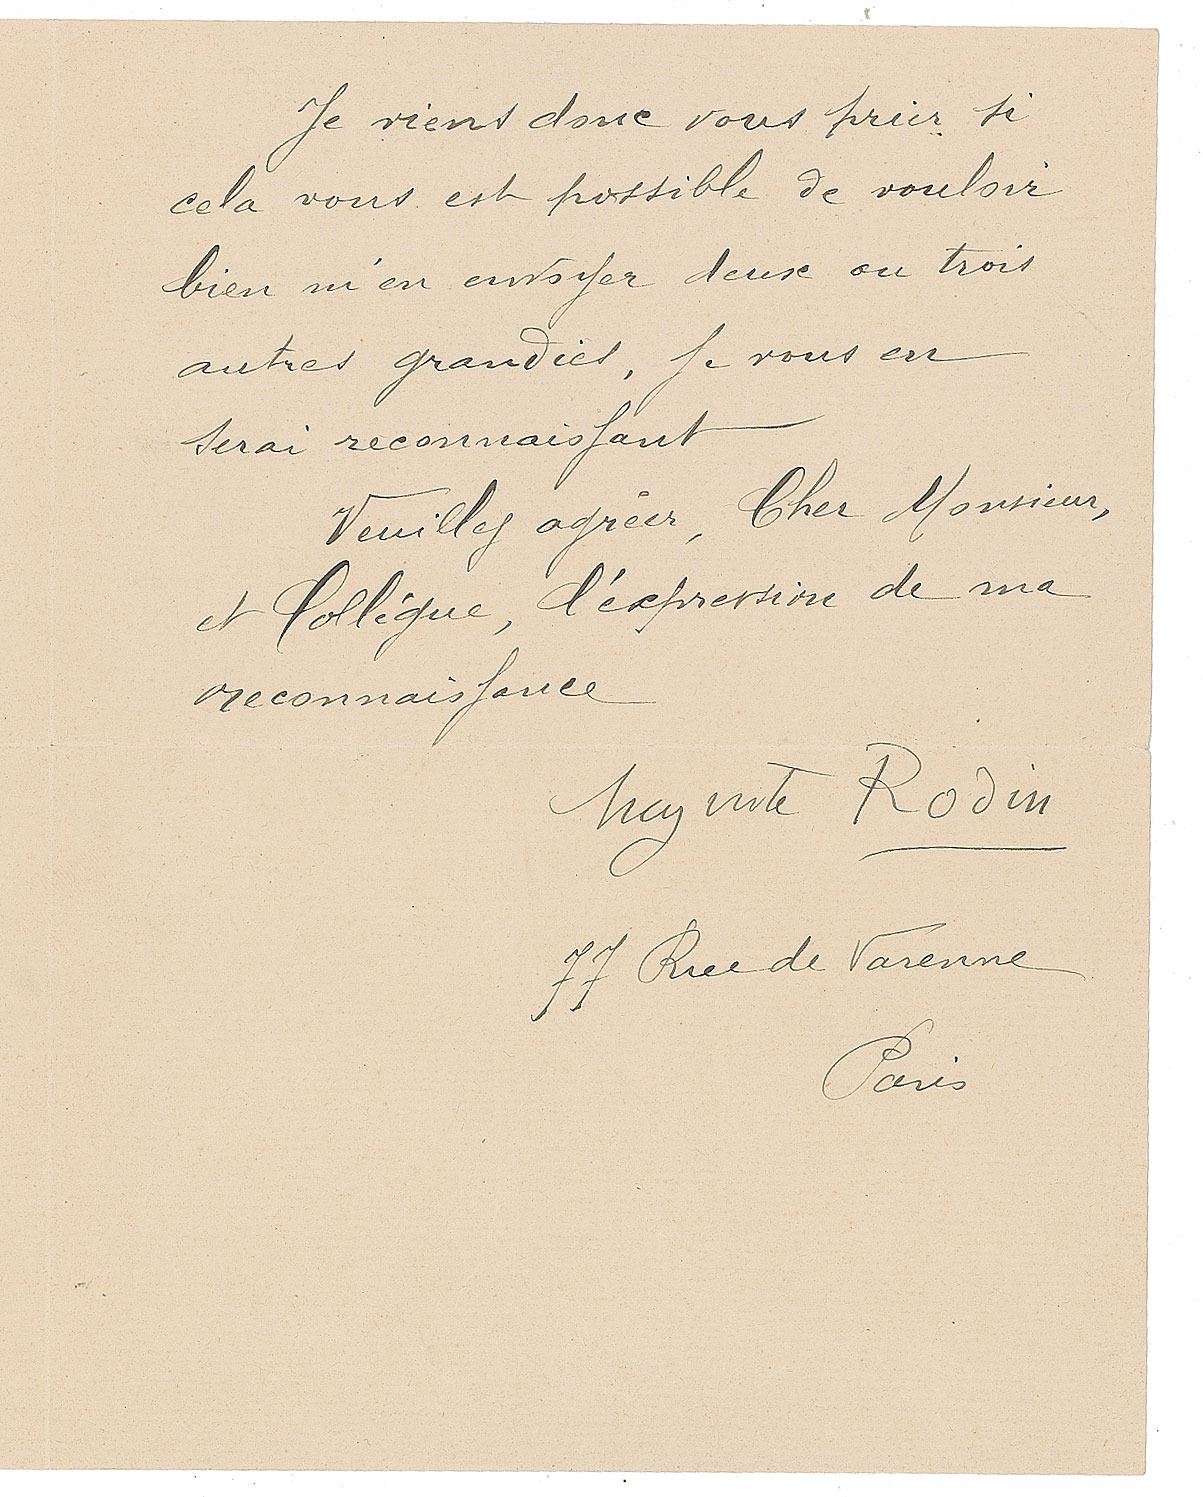 Je viens donc vous prier si
cela vous est possible de vouloir
bien m'en envoyer deux ou trois
autres grandies, Je vous en
serai reconnaissant
Veuillez agréer, Cher Monsieur,
et Collègue, l'expression de ma
reconnaissance
Auguste Rodin
77 Rue de Varenne
Paris